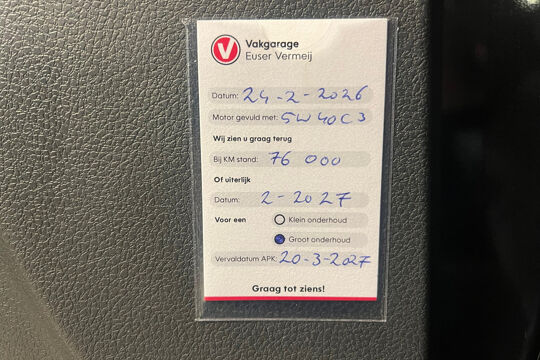 V
Vakgarage
Euser Vermeij
Datum: 24-2-2026
Motor gevuld met: 5W40C3
Wij zien u graag terug
Bij KM stand: 76 000
Of uiterlijk
Datum: 2-2027
Voor een Klein onderhoud
Groot onderhoud
Vervaldatum APK: 20-3-2027
Graag tot ziens!